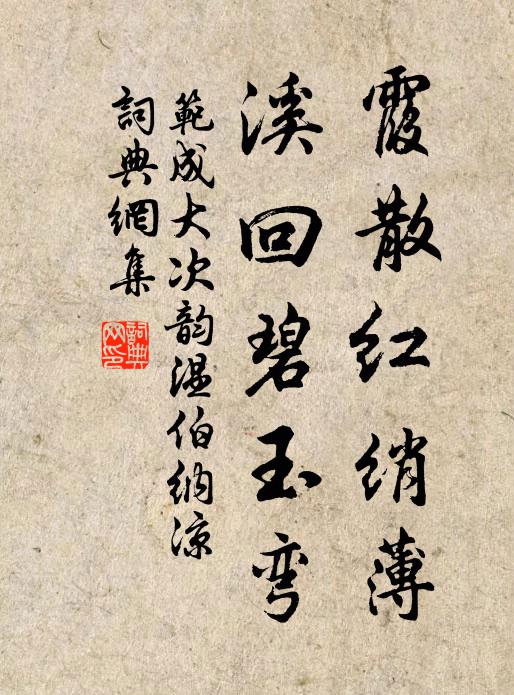 霞散红绡薄
溪回碧玉弯
範成大次韵温伯纳凉
詞典網集
詞典网印